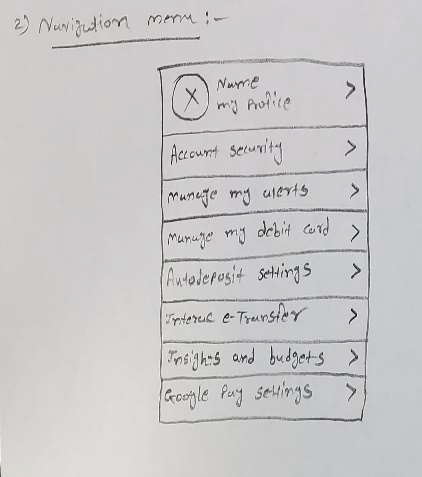 2) Navigation menu :-
X
Name >
my Profile
Account security >
manage my alerts >
manage my debit card >
Autodeposit settings >
Interac e-Transfer >
Insights and budgets >
Google Pay settings >